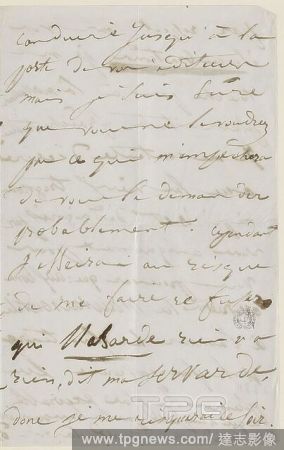 conduire jusqu'à la
porte de mon éditeur
mais je suis sûre
que vous ne le voudrez
pas ce qui m'empêchera
de vous le demander
probablement. Cependant
j'essierai au risque
de me faire refuser
qui Hasarde rien n'a
rien, dit ma servarde,
donc je me risquerai ce soir.
TPG
www.tpgnews.com / 達志影像